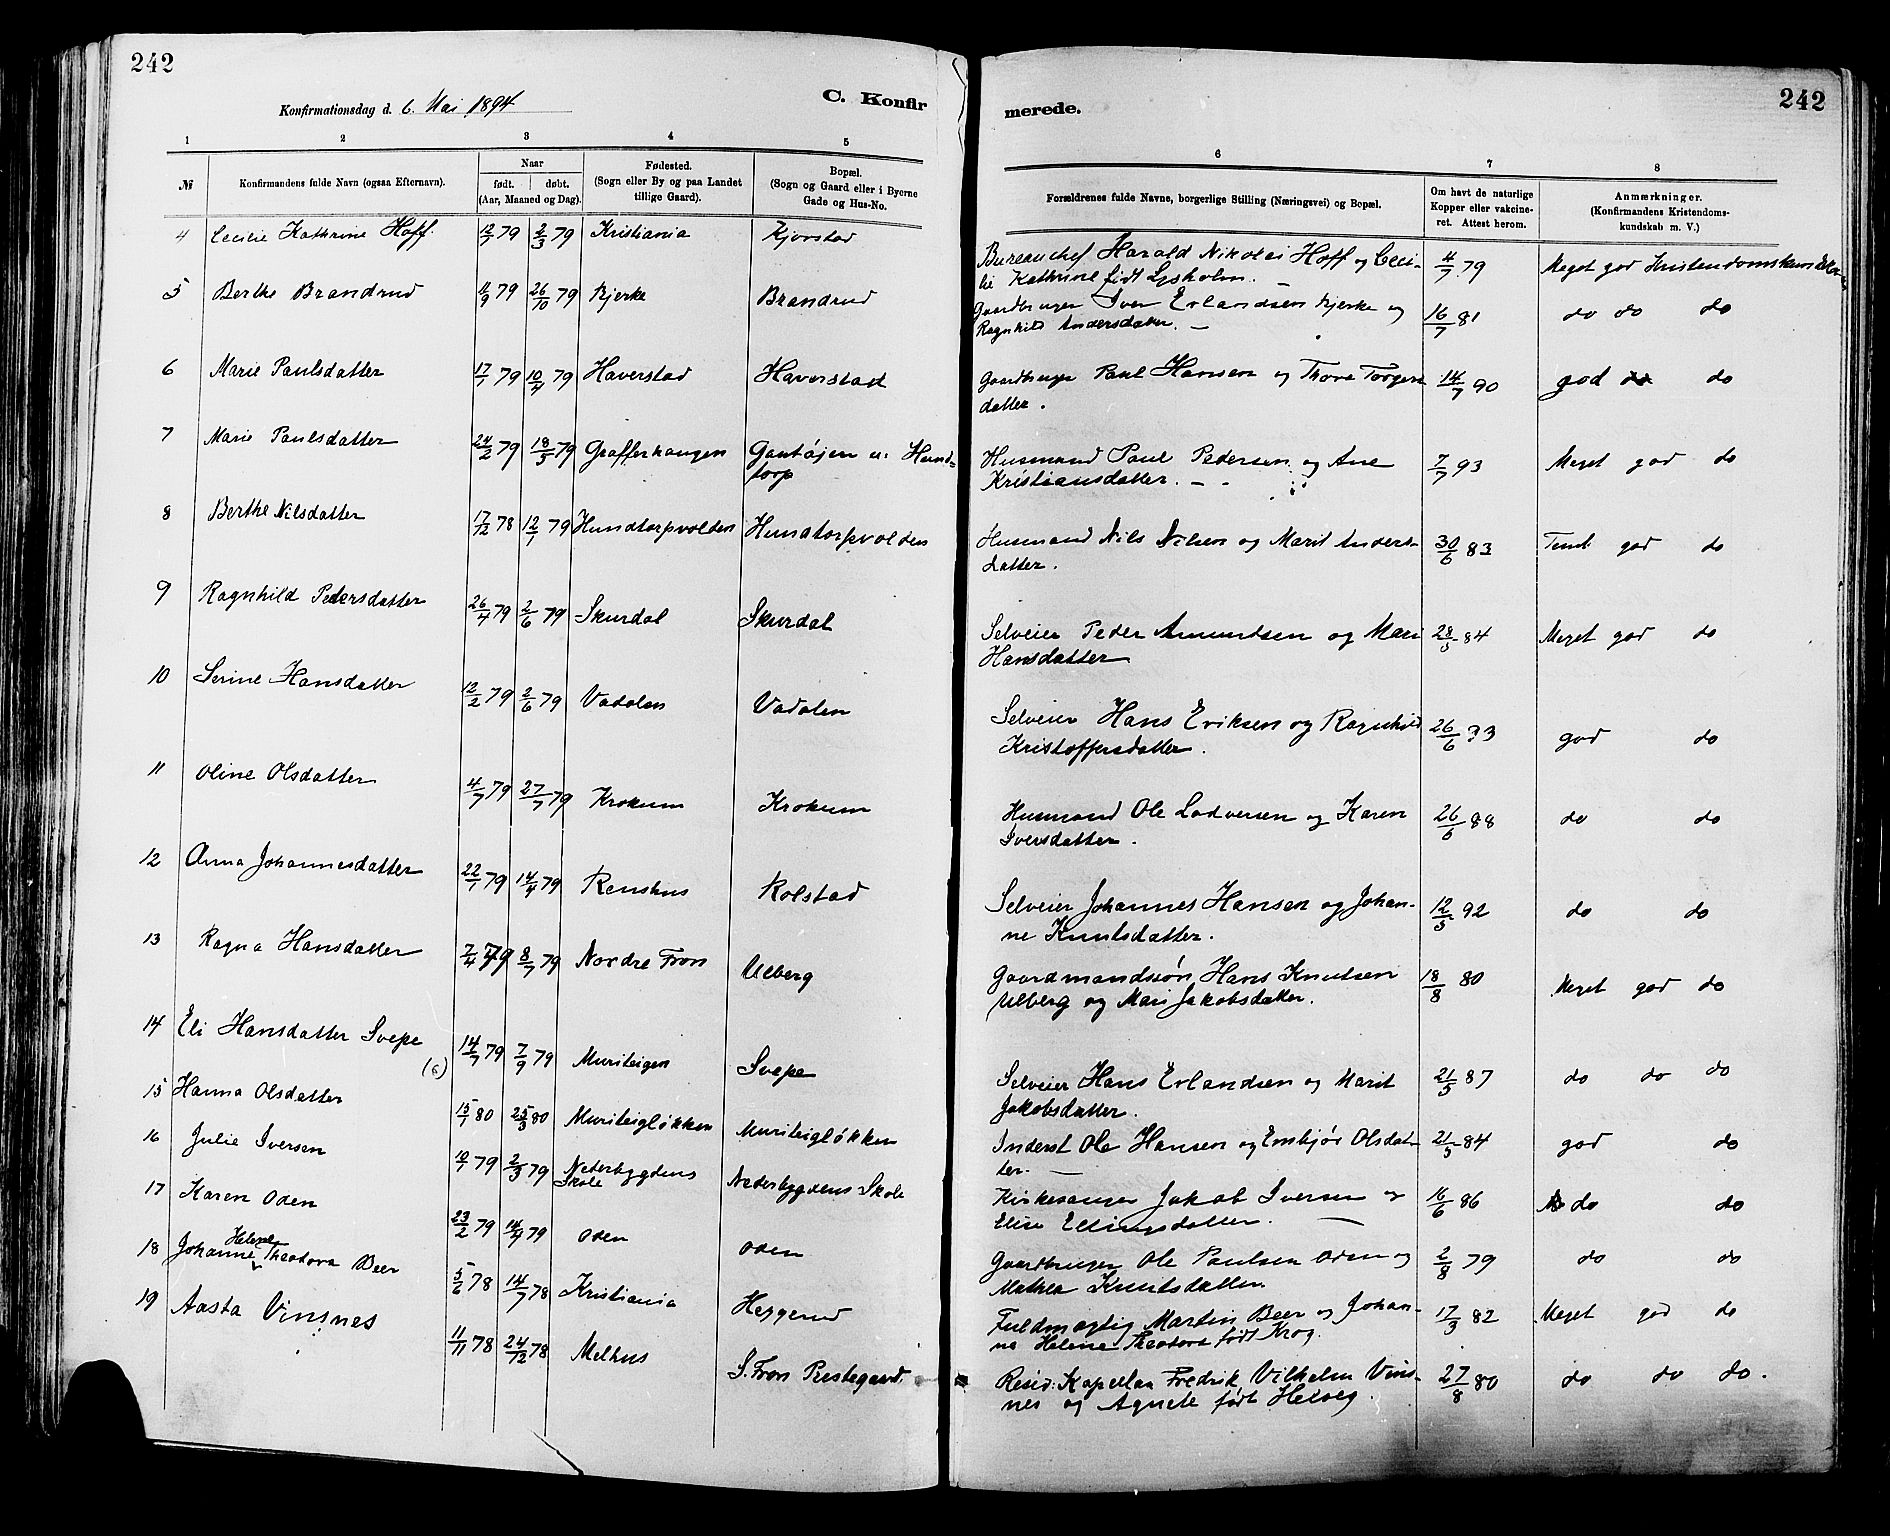 242
Konfirmationsdag d. 6. Mai 1894
C. Konfir
1 2 3 4 5
№ Konfirmandens fulde Navn (ogsaa Efternavn). Naar født. døbt. (Aar, Maaned og Dag). Fødested. (Sogn eller By og paa Landet tillige Gaard). Bopæl. (Sogn og Gaard eller i Byerne Gade og Hus-No.
4 Cecilie Kathrine Hoff. 12/1 79 2/3 79 Kristiania Kjorstad
5 Berthe Brandrud 11/9 79 26/10 79 Kjerke Brandrud
6 Marie Paulsdatter 17/1 79 79 Haverstad Haverstad
7 Marie Paulsdatter 24/2 79 18/5 79 Grafferhaugen Gautøjen u: Hund-
torp
8 Berthe Nilsdatter 17/12 78 12/1 79 Hundtorpvolden Hundtorpvolden
9 Ragnhild Pedersdatter 26/4 79 2/6 79 Skurdal Skurdal
10 Serine Hansdatter 12/2 79 2/6 79 Vadalen Vadalen
11 Oline Olsdatter 4/7 79 27/7 79 Krokum Krokum
12 Anna Johannesdatter 22/1 79 14/4 79 Renshus Kolstad
13 Ragna Hansdatter 7/4 79 8/7 79 Nordre Fron Ulberg
14 Eli Hansdatter Svepe 14/7 79 7/9 79 Muriteigen Svepe
15 Hanna Olsdatter 15/1 80 25/3 80 Muriteigløkken Muriteigløkken
16 Julie Iversen 10/1 79 2/3 79 Nederbygdens Skole Nederbygdens Skole
17 Karen Oden 23/2 79 14/4 79 Oden Oden
18 Johanne Helene Theodora Beer 5/6 78 14/7 78 Kristiania Heggerud
19 Aasta Vinsnes 11/11 78 24/12 78 Melhus S. Fron Prestegaard.
242
merede.
6 7 8
Forældrenes fulde Navne, borgerlige Stilling (Næringsvei) og Bopæl. Om havt de naturlige Kopper eller vakcineret. Attest herom. Anmærkninger. (Konfirmandens Kristendomskundskab m. V.)
Bureauchef Harald Nikolai Hoff og Ceci- 4/7 79 Meget god Kristendomskundskab
lie Kathrine født Lysholm.
Gaardbruger Iver Erlandsen Kjerke og 16/7 81 do do do
Ragnhild Andersdatter.
Gaardbruger Paul Hansen og Thore Torgers 14/7 90 god do
datter.
Husmand Paul Pedersen og Ane 7/7 93 Meget god do
Kristiansdatter.
Husmand Nils Nilsen og Marit Anders- 30/6 83 god do
datter.
Selveier Peder Amundsen og Mari 28/5 84 Meget god do
Hansdatter
Selveier Hans Eriksen og Ragnhild 26/6 93 god do
Kristoffersdatter.
Husmand Ole Lodversen og Karen 26/6 88 do do
Iversdatter.
Selveier Johannes Hansen og Johan- 12/5 92 do do
ne Knutsdatter.
Gaardmandssøn Hans Knutsen 18/8 80 Meget god do
Ulberg og Mari Jakobsdatter.
Selveier Hans Erlandsen og Marit 21/5 87 do do do
Jakobsdatter.
Inderst Ole Hansen og Embjør Olsdat- 21/5 84 god do
ter.
Kirkesanger Jakob Iversen og 16/6 86 do do
Elise Ellingsdatter.
Gaardbruger Ole Paulsen Oden og 2/8 79 do do
Mathea Knutsdatter.
Fuldmægtig Martin Beer og Johan- 17/3 82 Meget god do
ne Helene Theodora født Krog.
Resid: Kapellan Fredrik Vilhelm Vins- 27/8 80 do do do.
nes og Agnete født Helveg